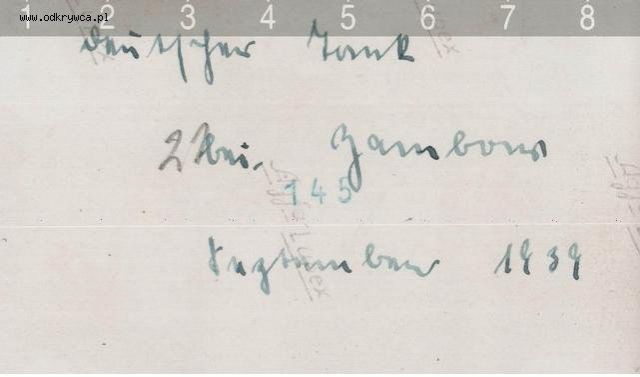 1 2 3 4 5 6 7 8
www.odkrywca.pl
Deutscher Tank
2 bei Zambow
145
September 1939